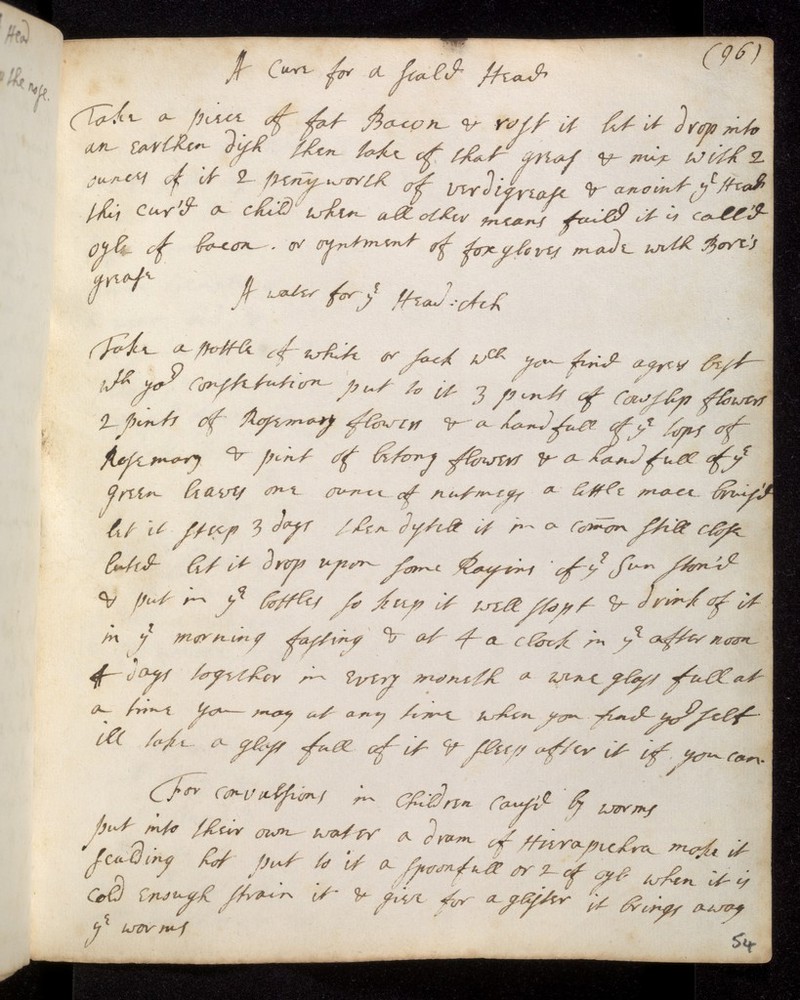 Head
the nose.
(96)
A Cure for a scald Head
Take a piece of fat Bacon & rost it let it drop into
an earthen dish then take of that greas & mix with 2
ounces of it 2 peñyworth of verdigrease & anoint yͤ Head
this cur'd a child when all other means faild it is call'd
oyle of bacon . or oyntment of foxgloves made with Bore's
grease
A water for yͤ Head : Ach
Take a Pottle of white or sack wᶜʰ you find agrees best
wᵗʰ yoʳ constetution put to it 3 pints of Cowslip flowers
2 pints of Rosemary flowers & a handfull of yͤ tops of
Rosemary & pint of betony flowers & a handfull of yͤ
green leaves one ounce of nutmegs a little mace bruis'd
let it steep 3 days then dystill it in a com̃on still close
luted let it drop upon some Raysins of yͤ Sun ston'd
& put in yͤ bottles so keep it well stopt & drink of it
in yͤ morning fasting & at 4 a clock in yͤ after noon
4 days together in every moneth a wine glass full at
a time you may at any time when you find yoʳ self
ill take a glass full of it & sleep after it if you can.
For convulsions in Children caus'd by worms
put into their own water a dram of Hierapickra make it
scalding hot put to it a spoonfull or 2 of oyle when it is
cold enough strain it & give for a glister it brings away
yͤ worms
54